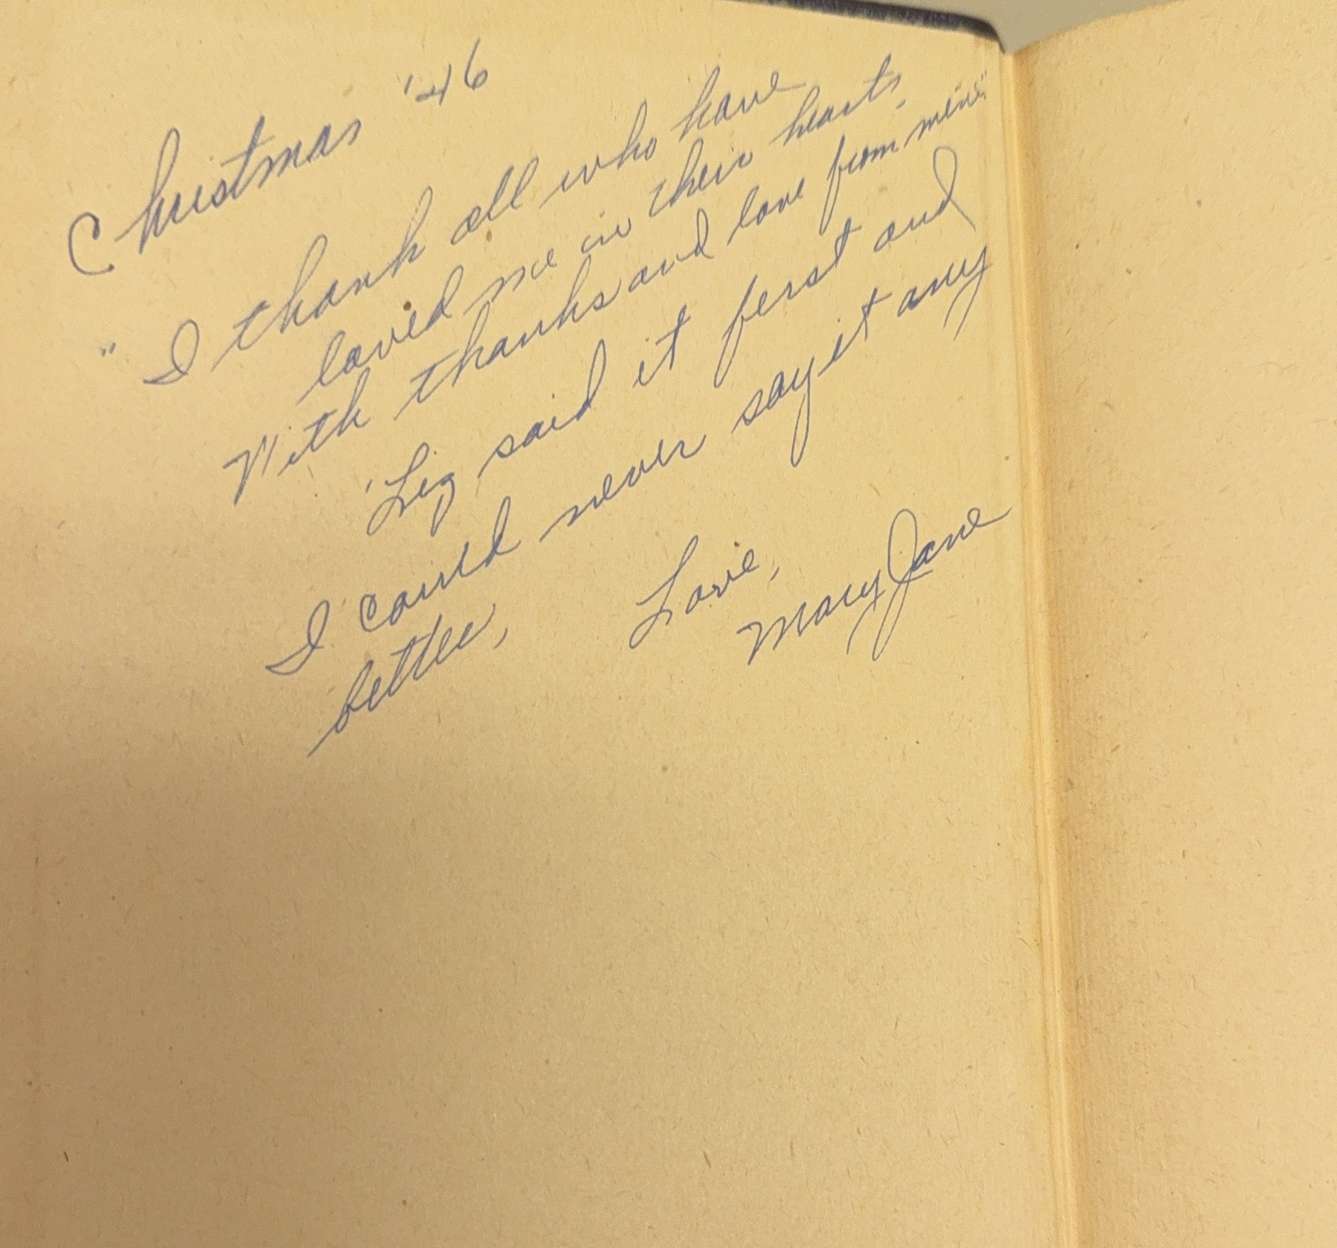 Christmas '46
"I thank all who have
loved me in their hearts,
With thanks and love from mine."
'Liz said it first and
I could never say it any
better,
Love,
Mary Jane